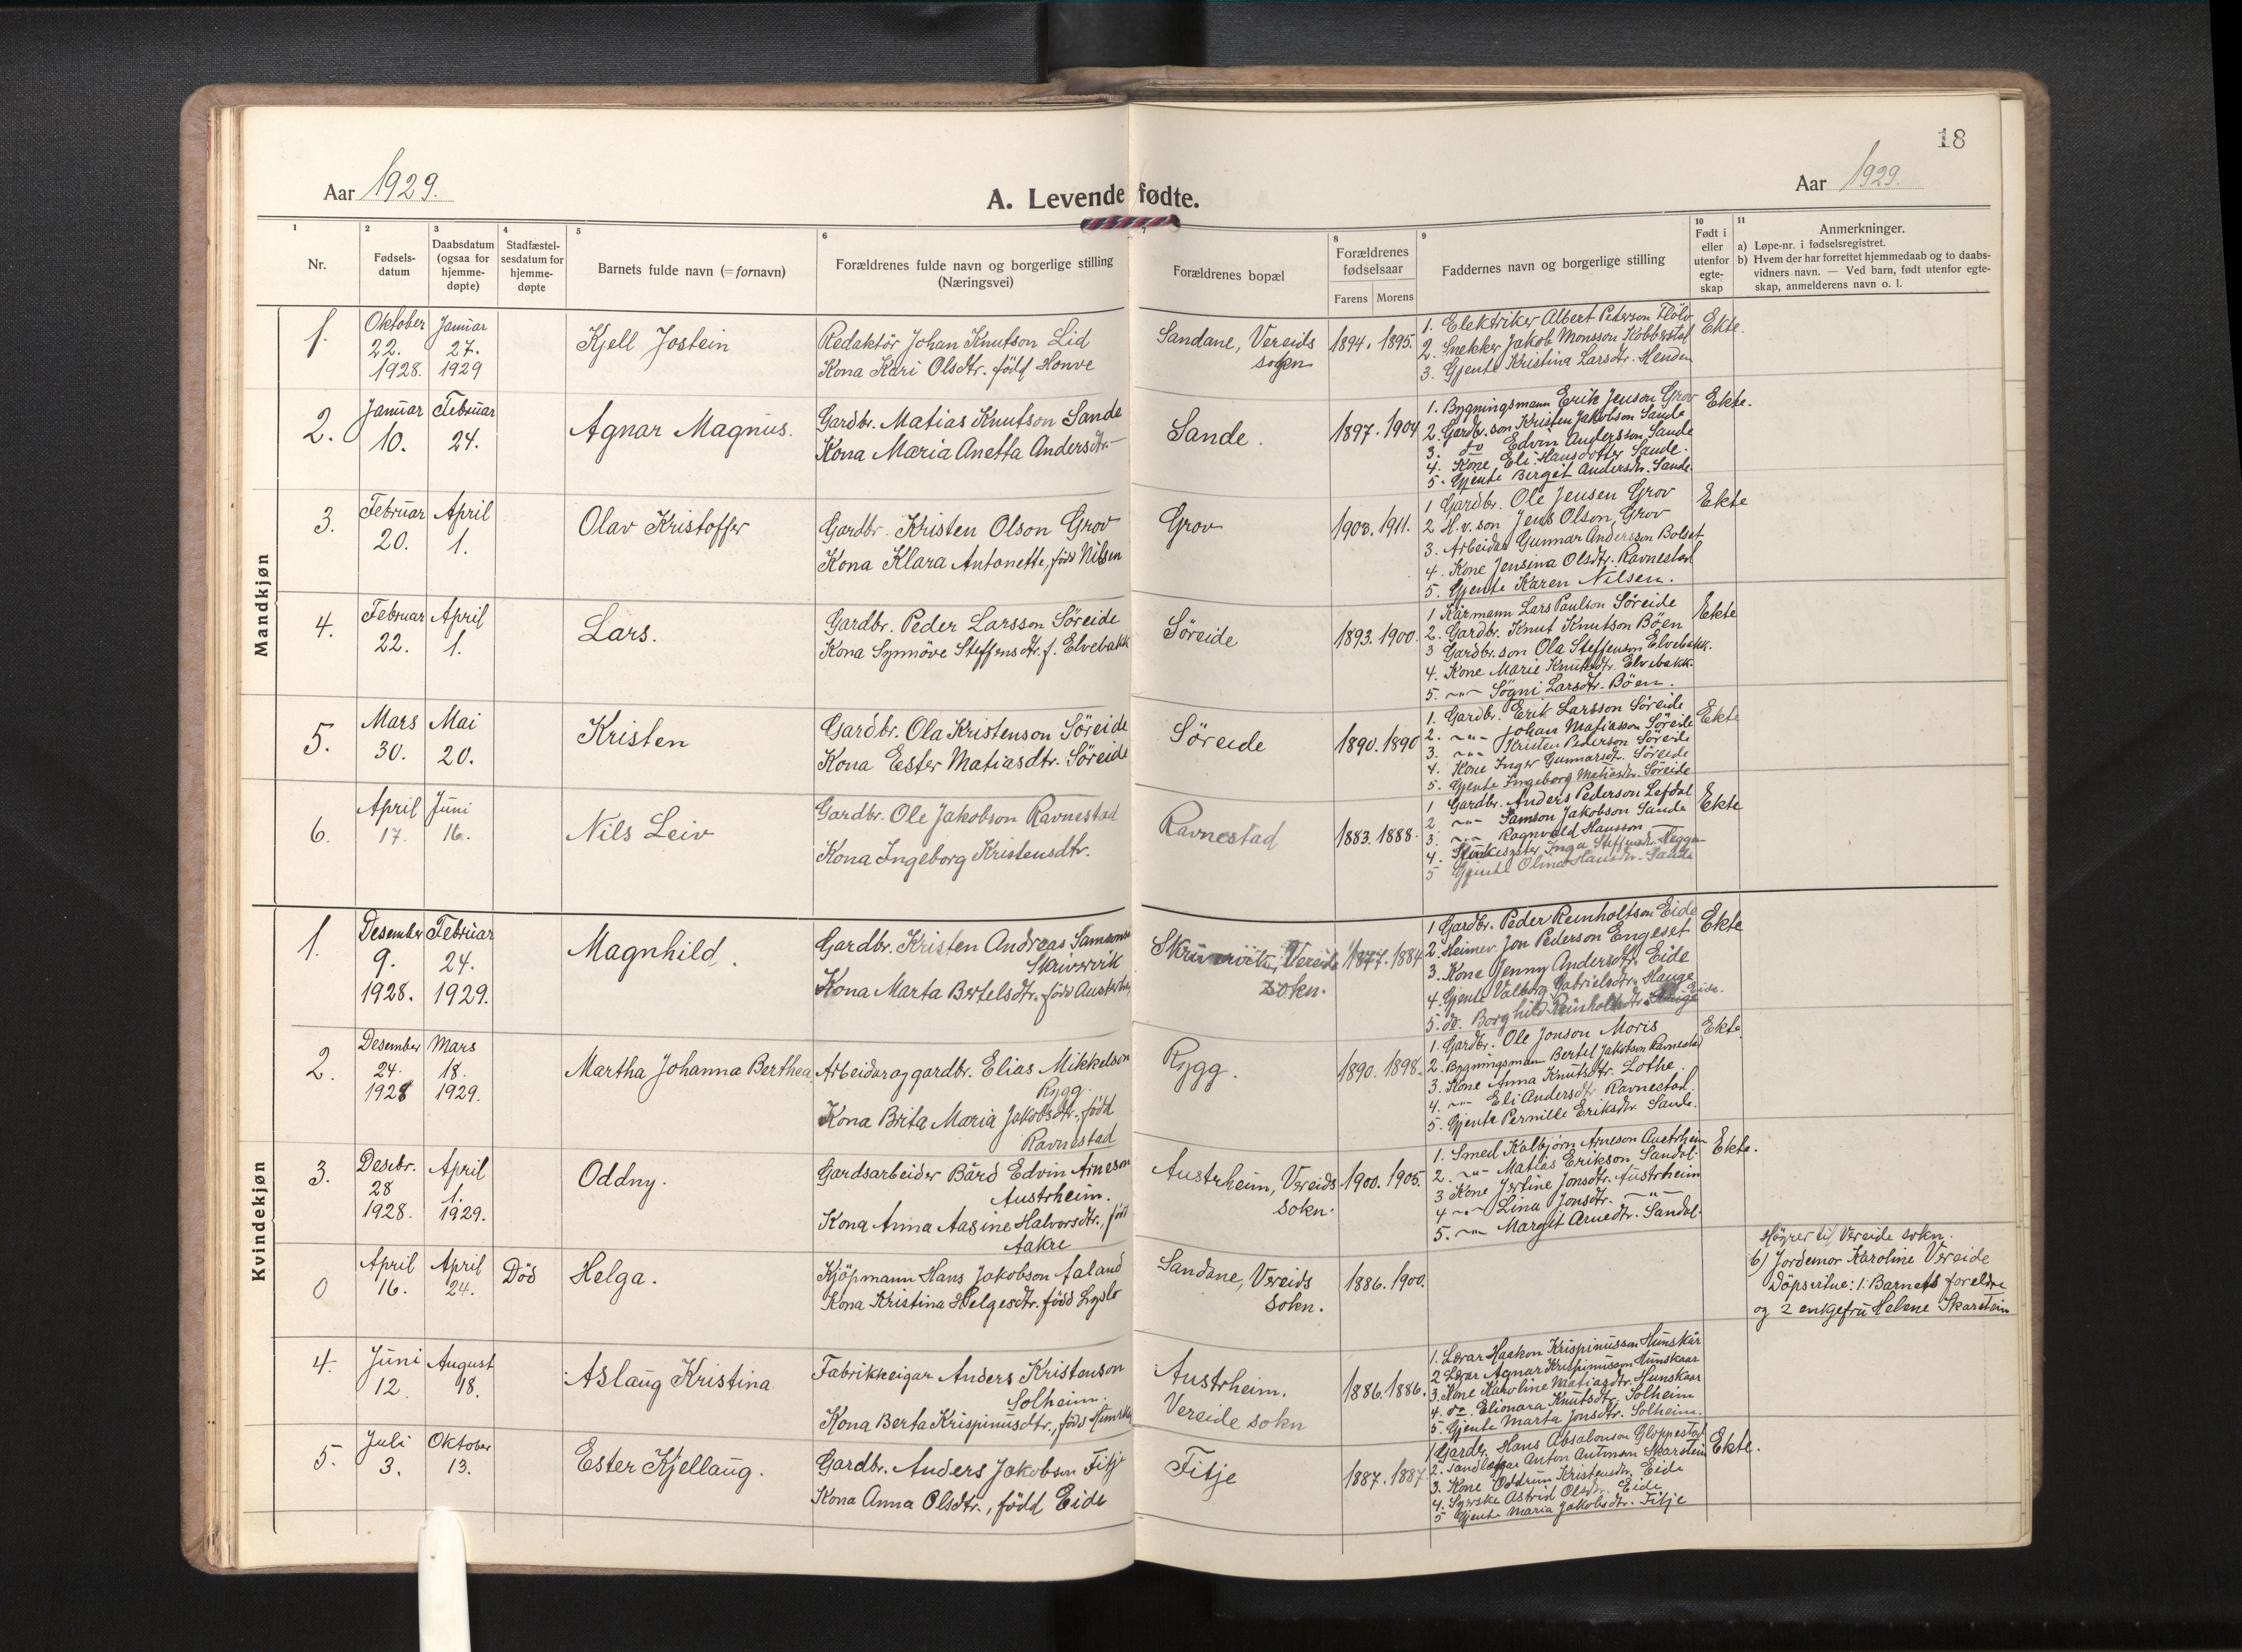 18
Aar 1929.
A. Levende fødte.
Aar 1929.
1
Nr.
2
Fødsels-
datum
3
Daabsdatum
(ogsaa for
hjemme-
døpte)
4
Stadfæstel-
sesdatum for
hjemme-
døpte
5
Barnets fulde navn (= fornavn)
6
Forældrenes fulde navn og borgerlige stilling
(Næringsvei)
7
Forældrenes bopæl
8
Forældrenes
fødselsaar
Farens Morens
9
Faddernes navn og borgerlige stilling
10
Født i
eller
utenfor
egte-
skap
11
Anmerkninger.
a) Løpe-nr. i fødselsregistret.
b) Hvem der har forrettet hjemmedaab og to daabs-
vidners navn. — Ved barn, født utenfor egte-
skap, anmelderens navn o. l.
Mandkjøn
1.
Oktober
22.
1928.
Januar
27.
1929
Kjell Jostein
Redaktör Johan Knutson Lid
Kona Kari Olsdtr. född Honve
Sandane, Vereids
sogen
1894. 1895.
1. Elektriker Albert Peterson Flölo
2. Snekker Jakob Monsson Kobberstad
3. Gjente Kristina Larsdtr. Henden
Ekte.
2.
Januar
10.
Februar
24.
Agnar Magnus.
Gardbr. Matias Knutson Sande
Kona Maria Anetta Andersdtr.
Sande.
1897. 1904
1. Bygningsmann Erik Jenson Grov
2. Gardb.son Kristen Jakobson Sande
3. do Edvin Andersson Sande
4. Kone Eli Hansdotter Sande.
5. Gjente Birgit Andersdtr. Sande.
Ekte.
3.
Februar
20.
April
1.
Olav Kristoffer
Gardbr. Kristen Olson Grov
Kona Klara Antonette, född Nilsen
Grov
1903. 1911.
1 Gardbr. Ole Jensen Grov
2 H.v.son Jens Olson Grov
3. Arbeidar Gunnar Andersson Bolset
4. Kone Jensina Olsdtr. Ravnestad
5. Gjente Karen Nilsen.
Ekte
4.
Februar
22.
April
1.
Lars.
Gardbr. Peder Larsson Søreide
Kona Synnöve Steffensdtr. f. Elvebakk
Søreide
1893. 1900.
1 Kårmann Lars Paulson Søreide
2. Gardbr. Knut Knutson Böen
3 Gardbr.son Ola Steffenson Elvebakk.
4. Kone Marie Knutsdtr. Elvebakk.
5. -"- Sögni Larsdtr. Böen.
Ekte
5.
Mars
30.
Mai
20.
Kristen
Gardbr. Ola Kristenson Søreide
Kona Ester Matiasdtr. Søreide
Søreide
1890. 1890
1. Gardbr. Erik Larsson Søreide
2. -"- Johan Matiasson Søreide
3. -"- Kristen Pederson Søreide
4. Kone Inger Gunnarsdt. Søreide
5. Gjente Ingeborg Matiasdtr. Søreide
Ekte
6.
April
17.
Juni
16.
Nils Leiv
Gardbr. Ole Jakobson Ravnestad
Kona Ingeborg Kristensdtr.
Ravnestad
1883. 1888.
1 Gardbr. Anders Pederson Lefdal
2 -"- Samson Jakobson Sande
3. -"- Ragnvald Hansson
4. Inga Steffensdtr.
5 Gjente Olina Hansdtr. Sande
Ekte
Kvindekjøn
1.
Desember
9.
1928.
Februar
24.
1929.
Magnhild.
Gardbr. Kristen Andreas Samsonson
Skrivarvik
Kona Marta Bertelsdtr. född
Skrivarvik, Vereids
sokn.
1877. 1884
1 Gardbr. Peder Reinholtson Eide
2. Heimev. Jon Pederson Engeset
3. Kone Jenny Andersdtr. Eide
4. Gjente Valborg Gabrielsdtr. Hauge
5. do. Borghild Reinholtsdtr. Eide.
Ekte
2.
Desember
24.
1928
Mars
18.
1929.
Martha Johanna Berthea
Arbeidar og gardbr. Elias Mikkelson
Rygg.
Kona Brita Maria Jakobsdtr., född
Ravnestad
Rygg.
1890. 1898.
1. Gardbr. Ole Jonson Moris
2. Bygningsmann Bertel Jakobson Ravnestad
3. Kone Anna Knutsdtr. Lothe.
4. -"- Eli Andersdtr. Ravnestad.
5. Gjente Pernille Eriksdtr. Sande.
Ekte
3.
Desbr.
28
1928.
April
1.
1929.
Oddny.
Gardsarbeider Bård Edvin Arneson
Austrheim.
Kona Anna Aasine Halvorsdtr., född
Aakre
Austrheim, Vereids
sokn.
1900. 1905.
1. Smed Kolbjørn Arneson Austrheim
2. -"- Matias Erikson Sandal.
3 Kone Jertine Jonsdtr. Austrheim
4 -"- Lina Jonsdtr. -"-
5. -"- Margit Arnedtr. Sandal.
Ekte.
0
April
16.
April
24.
Död
Helga.
Kjöpmann Hans Jakobson Aaland
Kona Kristina Helgesdtr. född Lyslo
Sandane, Vereids
sokn.
1886. 1900.
Høyrer til Vereide sokn.
b) Jordemor Karoline Vereide
Döpsvitne: 1. Barnets foreldre
og 2 enkefru Helene Skarstein
4.
Juni
12.
August
18.
Aslaug Kristina
Fabrikkeigar Anders Kristenson
Solheim.
Kona Berta Krispinusdtr., född Hunskår
Austrheim.
Vereide sokn
1886. 1886.
1. Lærar Haakon Krispinusson Hunskår
2 Lærar Agnar Krispinusson Hunskaar
3. Kone Karoline Matiasdtr. Hunskaar
4. do. Elionara Knutsdtr. Solheim
5. Gjente Marta Jonsdtr. Solheim.
5.
Juli
3.
Oktober
13.
Ester Kjellaug.
Gardbr. Anders Jakobson Fitje
Kona Anna Olsdtr., född Eide
Fitje
1887. 1887
1 Gardbr. Hans Absalonson Gloppestad
2. Tandlækjar Anton Antonson Skarstein
3. Kone Oddrun Kristensdtr. Eide
4. Syerske Astrid Olsdtr. Eide
5 Gjente Maria Jakobsdtr. Fitje
Ekte.